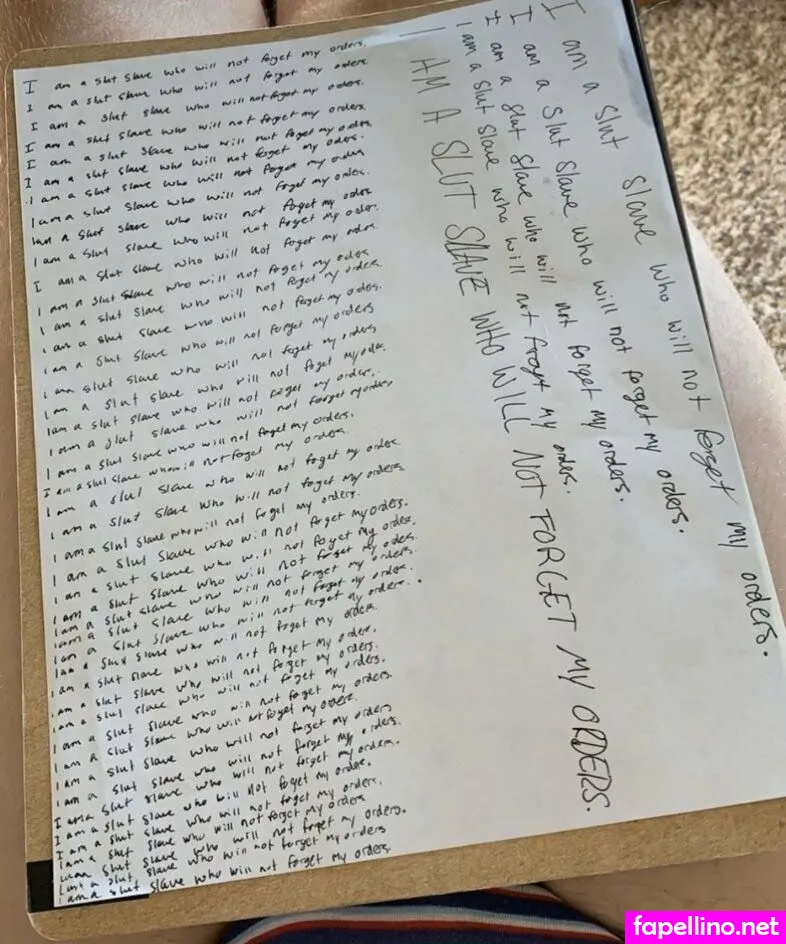 I am a slut slave who will not forget my orders.
I am a slut slave who will not forget my orders.
I am a slut slave who will not forget my orders.
I am a slut slave who will not forget my orders.
I am a slut slave who will not forget my orders.
I am a slut slave who will not forget my orders.
I am a slut slave who will not forget my orders.
I am a slut slave who will not forget my orders.
I am a slut slave who will not forget my orders
I am a slut slave who will not forget my orders.
I am a slut slave who will not forget my orders.
I am a slut slave who will not forget my orders
I am a slut slave who will not forget my orders.
I am a slut slave who will not forget my orders.
I am a slut slave who will not forget my orders
I am slut slave who will not forget my orders
I am a slut slave who will not foget my orders.
I am a slut slave who will not forget my orders.
I am a slut slave who will not forget my orders,
I am a slut slave who will not forget my orders.
I am a slut slave who will not forget my orders.
I am a slut slave who will not forget my orders.
I am a slut slave who will not forget my orders
I am a slut slave who will not forget my orders.
I am a slut slave who will not forget my orders.
I am a slut slave who will not forget my orders.
I am a slut slave who will not forget my orders.
I am a slut slave who will not forget my orders.
I am a slut slave who will not forget my orders.
I am a slut slave who will not forget my orders.
I am a slut slave who will not forget my orders
I am a slut slave who will not forget my orders.
I am a slut slave who will not forget my orders.
I am a slut slave who will not forget my orders.
I am a slut slave who will not forget my orders.
I am a slut slave who will not forget my orders.
I am a slut slave who will not forget my orders
I am a slut slave who will not forget my orders.
I am a slut slave who will not forget my orders.
I am a slut slave who will not forget my orders.
I am a slut slave who will not forget my orders.
I am a slut slave who will not forget my orders
I am slut slave who will not forget my orders.
I am a slut slave who will not forget my orders
I am a slut slave who will not forget my orders.
I am a slut slave who will not forget my orders.
I am a slut slave who will not forget my orders.
I am a slut slave who will not forget my orders.
I am a slut slave who will not frogt my orders.
I AM A SLUT SLAVE WHO WILL NOT FORGET MY ORDERS.
fapellino.net